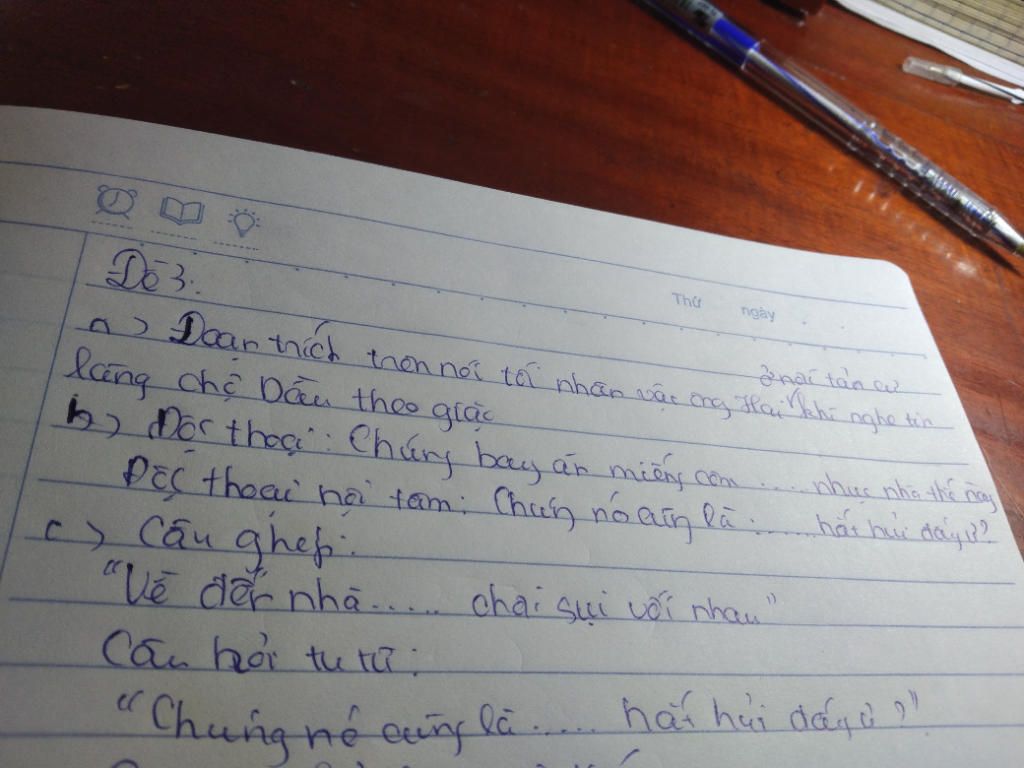 Thứ ngày
Đề 3:
a) Đoạn trích trên nói tới nhân vật ông Hai ở nơi tản cư khi nghe tin
làng chợ Dầu theo giặc
b) Độc thoại: Chúng bay ăn miếng cơm ..... nhục nhã thế này
Độc thoại nội tâm: Chúng nó cũng là ........ hắt hủi đấy ư?
c) Câu ghép:
"Về đến nhà ..... chơi sụi với nhau"
Câu hỏi tu từ:
"Chúng nó cũng là ..... hắt hủi đấy ư?"